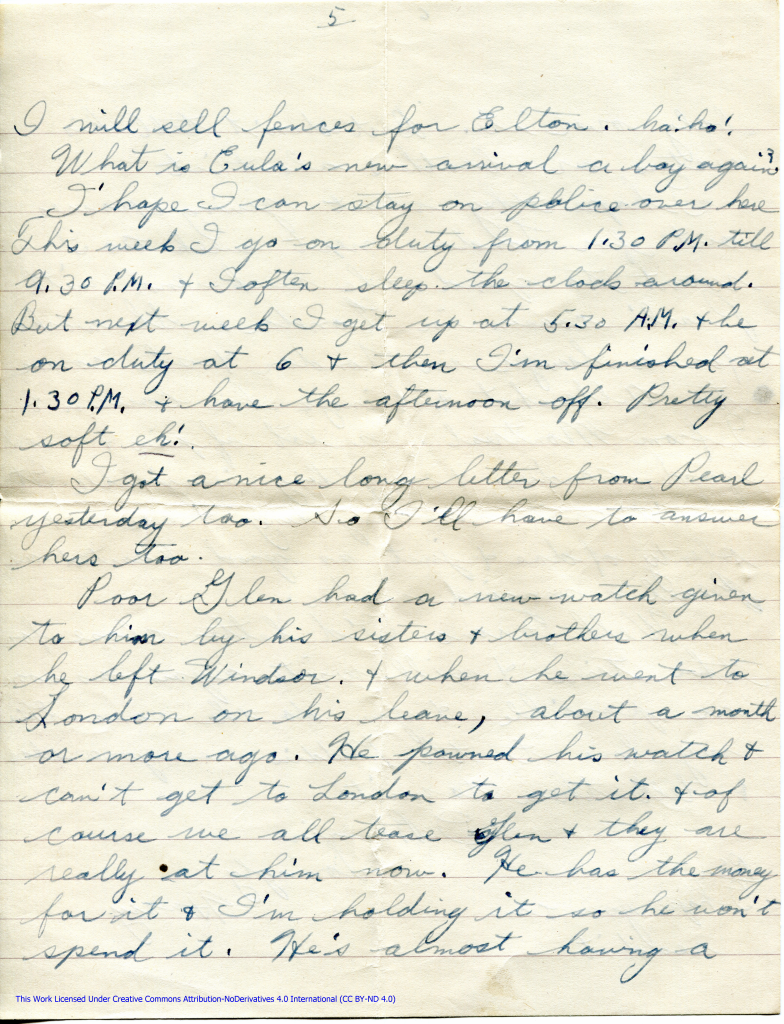 5
I will sell fences for Elton. ha! ho!
What is Eula's new arrival a boy again?
I hope I can stay on police over here
This week I go on duty from 1.30 P.M. till
9.30 P.M. & I often sleep the clock around.
But next week I get up at 5.30 A.M. & be
on duty at 6 & then I'm finished at
1.30 P.M. & have the afternoon off. Pretty
soft eh!
I got a nice long letter from Pearl
yesterday too. So I'll have to answer
hers too.
Poor Glen had a new watch given
to him by his sisters & brothers when
he left Windsor. & when he went to
London on his leave, about a month
or more ago. He pawned his watch &
can't get to London to get it. & of
course we all tease Glen & they are
really at him now. He has the money
for it & I'm holding it so he won't
spend it. He's almost having a
This Work Licensed Under Creative Commons Attribution-NoDerivatives 4.0 International (CC BY-ND 4.0)